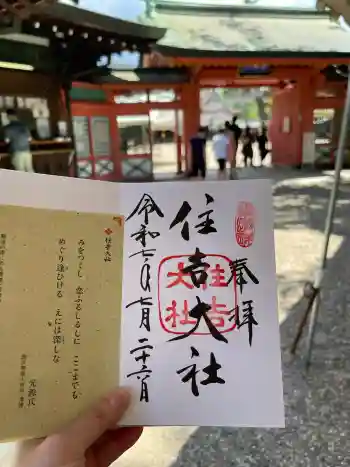 奉拝
住吉大社
住吉
大社
令和七年七月二十六日
住吉大社
みをつくし 恋ふるしるしに ここまでも
めぐり逢ひける えには深しな
光源氏